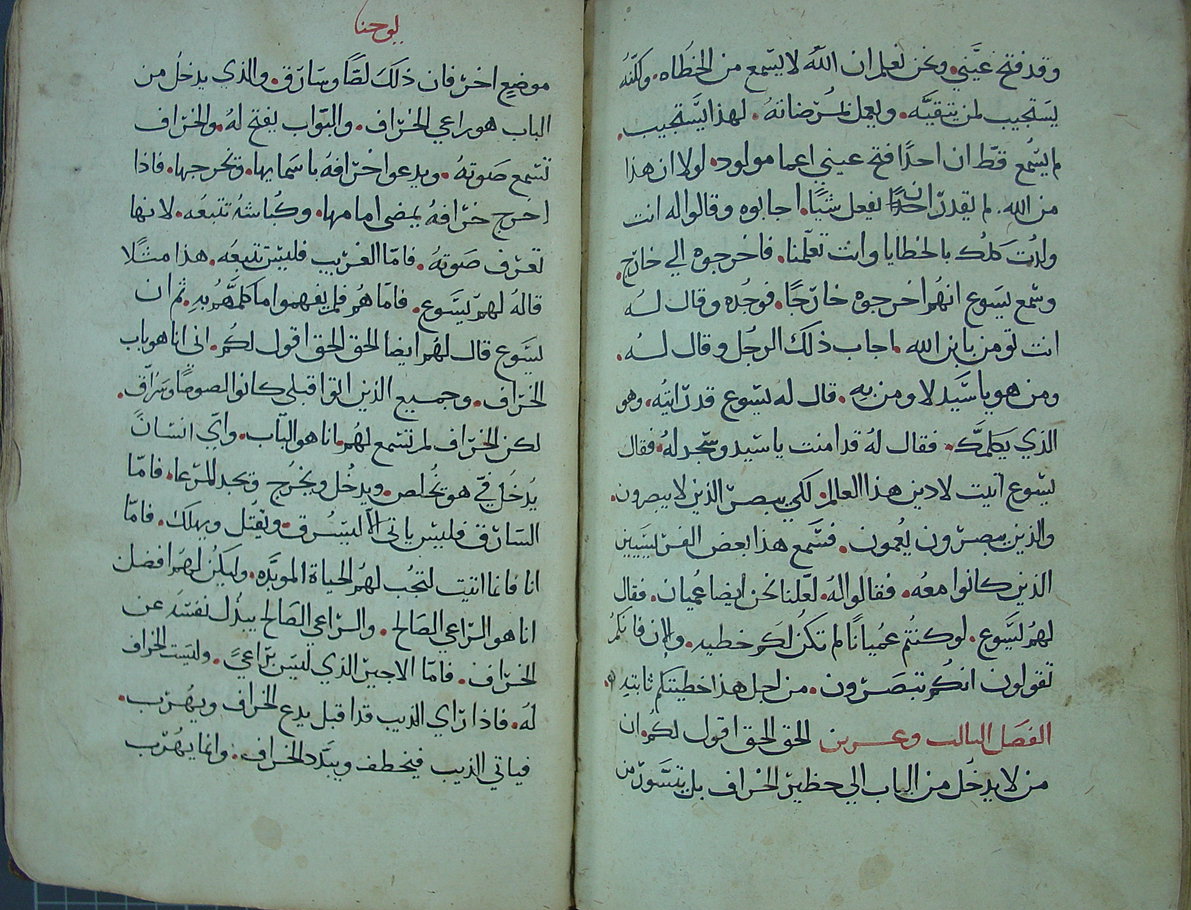 وقد فتح عيني. ونحن نعلم ان الله لا يسمع من الخطاه. ولكنه
يستجيب لمن يتقيه. ويعمل لمرضاته. لهذا يستجيب.
لم يسمع قط ان احدًا فتح عيني اعما مولود. لولا ان هذا
من الله. لم يقدر ان يفعل شيًا. اجابوه وقالوا له انت
ولدت كلك بالخطايا وانت تعلمنا. فاخرجوه الي خارج.
وسمع يسوع انهم اخرجوه خارجًا. فوجده وقال له
انت تومن بابن الله. اجاب ذلك الرجل وقال له.
ومن هو يا سيد لاومن به. قال له يسوع قد رايته. وهو
الذي يكلمك. فقال له قد امنت يا سيد وسجد له. فقال
يسوع اتيت لادين هذا العالم. لكي يبصر الذين لا يبصرون.
والذين يبصرون يعمون. فسمع هذا بعض الفريسيين
الذين كانوا معه. فقالوا له. لعلنا نحن ايضا عميان. فقال
لهم يسوع. لو كنتم عميانًا لم تكن لكم خطيه. والان فانكم
تقولون انكم تبصرون. من اجل هذا خطيتكم ثابته.
الفصل الثالث وعشرين الحق الحق اقول لكم ان
من لا يدخل من الباب الي حظير الخراف بل يتسور من
يوحنا
موضع اخر فان ذلك لصًا وسارق. والذي يدخل من
الباب هو راعي الخراف. والبواب يفتح له. والخراف
تسمع صوته. ويدعوا خرافه باسمايها. وتخرجها. فاذا
اخرج خرافه يمضي امامها. وكباشه تتبعه. لانها
تعرف صوته. فامّا الغريب فليس تتبعه. هذا مثلا
قاله لهم يسوع. فامّا هم فلم يفهموا ما كلمهم به. ثم ان
يسوع قال لهم ايضا الحق الحق اقول لكم. اني انا هو باب
الخراف. وجميع الذين اتوا قبلي كانوا لصوصًا وسراق.
لكن الخراف لم تسمع لهم. انا هو الباب. واي انسانً
يدخل في هو يخلص. ويدخل ويخرج وتجد المرعا. فامّا
السارق فليس ياتي الا ليسرق. ويقتل ويهلك. فامّا
انا فانما اتيت لتجب لهم الحياة الموبده. وليكن لهم افضل
انا هو الراعي الصالح. والراعي الصالح يبذل نفسه عن
الخراف. فامّا الاجير الذي ليس براعي. وليست الخراف
له. فاذا راي الذيب قد اقبل يدع الخراف ويهرب.
فياتي الذيب فيخطف ويبدد الخراف. وانما يهرب